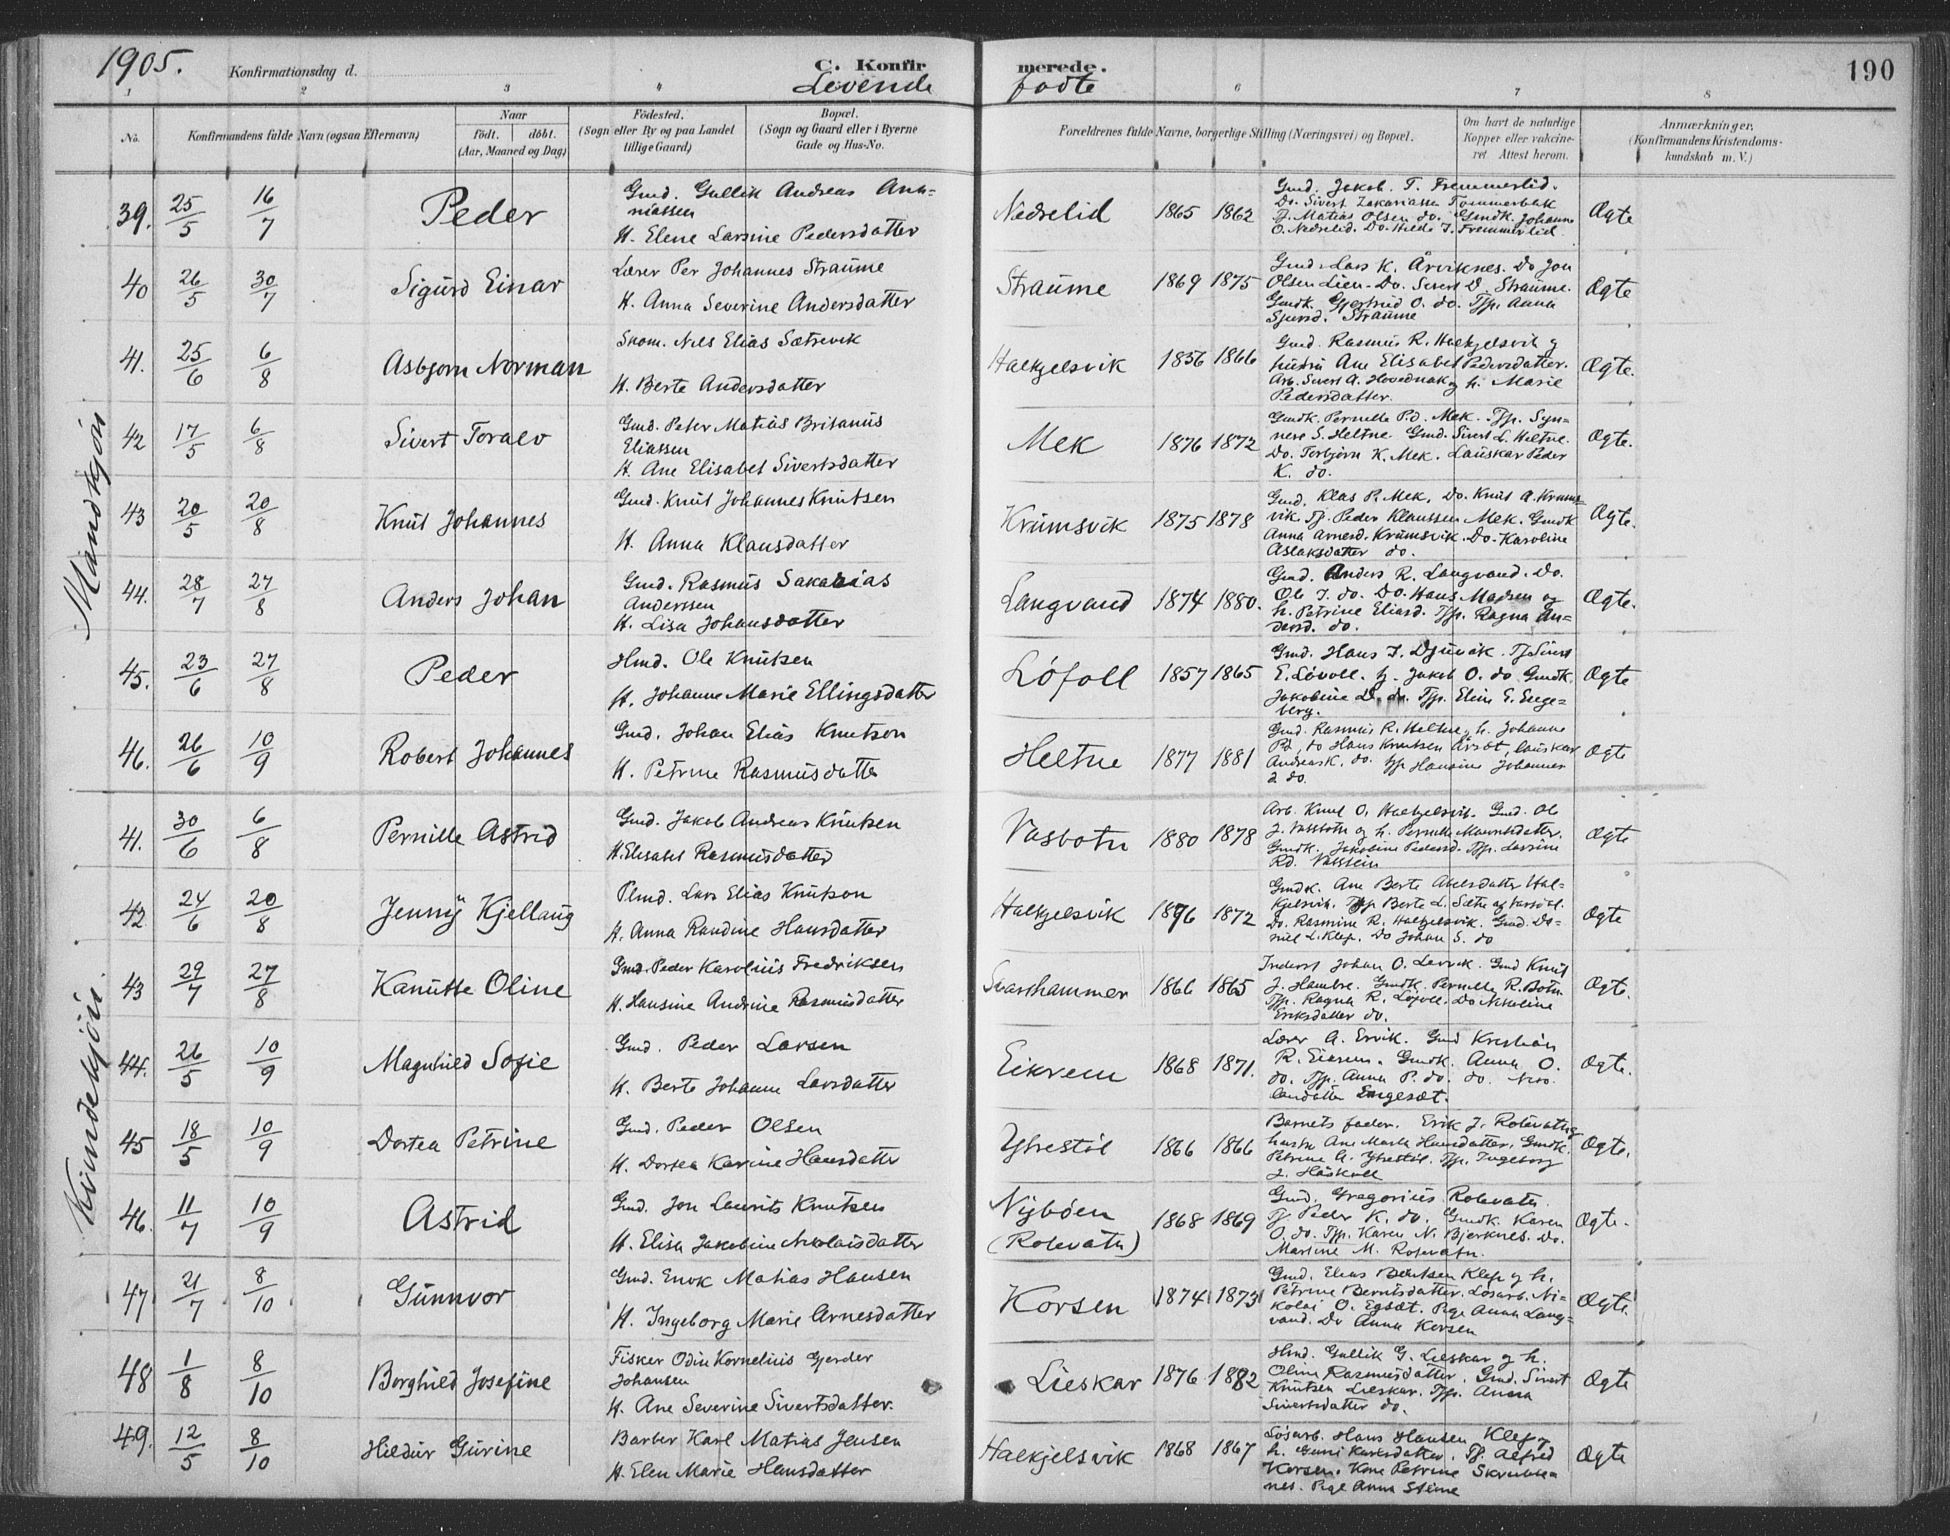 1905.
Konfirmationsdag d.
C. Konfirmerede.
Levende fødte
190
1 2 3 4 6 7 8
No.
Konfirmandens fulde Navn (ogsaa Efternavn)
Naar
født. døbt.
(Aar, Maaned og Dag)
Fødested.
(Sogn eller By og paa Landet
tillige Gaard)
Bopæl.
(Sogn og Gaard eller i Byerne
Gade og Hus-No.
Forældrenes fulde Navne, borgerlige Stilling (Næringsvei) og Bopæl.
Om havt de naturlige
Kopper eller vakcine-
ret Attest herom.
Anmærkninger.
(Konfirmandens Kristendoms-
kundskab m. V.)
Mandkjøn
39. 25/5 16/7 Peder
Gmd. Gullik Andreas Ana-
niassen
H. Elene Larsine Pedersdatter
Nedrelid 1865 1862
Gmd. Jakob T. Fremmerlid.
Do. Sivert Zakariassen Tømmerbak
Tj. Matias Olsen do. Gmdk. Johanne
O. Nedrelid. Do. Hilda J. Fremmerlid
Ægte
40 26/5 30/7 Sigurd Einar
Lærer Per Johannes Straume
H. Anna Severine Andersdatter
Straume 1869 1875
Gmd. Lars K. Årviknes. Do Jon
Olsen Lien. Do. Sivert D. Straume.
Gmdk. Gjertrud O. do. Tjp. Anna
Sjursd. Straume
Ægte
41. 25/6 6/8 Asbjørn Norman
Skom. Nils Elias Sætrevik
H. Berte Andersdatter
Halkjelsvik 1856 1866
Gmd. Rasmus R. Halkjelsvik og
hustru Ane Elisabet Pedersdatter.
Arb. Sivert A. Hovednak og h. Marie
Pedersdatter.
Ægte.
42 17/5 6/8 Sivert Toralv
Gmd. Peter Matias Britanus
Eliassen
H. Ane Elisabet Sivertsdatter
Mek 1876 1872
Gmdk. Pernille P.d. Mek. Tjp. Syn-
neve S. Heltne. Gmd. Sivert L. Heltne.
Do. Torbjørn K. Mek. Lauskar Peder
K. do.
Ægte.
43 20/5 20/8 Knut Johannes
Gmd. Knut Johannes Knutsen
H. Anna Klausdatter
Krumsvik 1875 1878
Gmd. Klas P. Mek. Do. Knut A. Krums-
vik. Tj. Peder Klaussen Mek. Gmdk
Anna Arnesd. Krumsvik. Do. Karoline
Aslaksdatter do.
Ægte.
44. 28/7 27/8 Anders Johan
Gmd. Rasmus Sakarias
Anderssen
H. Lisa Johansdatter
Langvand 1874 1880.
Gmd. Anders R. Langvand. Do.
Ole J. do. Do. Hans Madsen og
h. Petrine Eliasd. Tjp. Ragna An-
dersd. do.
Ægte.
45. 23/6 27/8 Peder
Hmd. Ole Knutsen
H. Johanne Marie Ellingsdatter
Løfoll 1857 1865
Gmd. Hans J. Djuvik. Tj. Sivert
E. Løvoll. Tj. Jakob O. do Gmdk.
Jakobine D. do. Tjp. Elin E. Enge-
berg.
Ægte
46. 26/6 10/9 Robert Johannes
Gmd. Johan Elias Knutson
H. Petrine Rasmusdatter
Heltne 1877 1881
Gmd. Rasmus R. Heltne, h. Johanne
P.d. do Hans Knutsen Årset, lauskar
Andreas K. do. tjp Hansine Johannes
d do.
Ægte
Kvindekjøn.
41. 30/6 6/8 Pernille Astrid
Gmd. Jakob Andreas Knutsen
H. Elisabet Rasmusdatter
Vasbotn 1880 1878
Arb. Knut O. Halkjelsvik. Gmd. Ole
J. Vassbotn og h. Pernille Mauritsdatter.
Gmdk. Jakobine Pedersd. Tjp. Larsine
Rd. Vatstein
Ægte
42. 24/6 20/8 Jenny Kjellaug
Plmd. Lars Elias Knutson
H. Anna Randine Hansdatter
Halkjelsvik 1876 1872
Gmdk. Ane Berte Akselsdatter Hal-
kjelsvik. Tjp Berte L.
Do. Rasmine R. Halkjelsvik. Gmd. Da-
niel L. Klep. Do Johan S. do
Ægte
43 29/7 27/8 Kanutte Oline
Gmd. Peder Karolius Fredriksen
H. Hansine Andrine Rasmusdatter
Svarthammer 1866 1865
Inderst Johan O. Lervik. Gmd Knut
J. Hambre. Gmdk. Pernille R. Botn.
Tjp. Ragna R. Løfoll. Do Nikoline
Eriksdatter do.
Ægte.
44. 26/5 10/9 Magnhild Sofie
Gmd. Peder Larsen
H. Berte Johanne Larsdatter
Eikrem 1868 1871.
Lærer A. Ervik. Gmd Kristian
R. Eikrem. Gmdk. Anna O.
do. Tjp. Anna P. do. do.
Engeset.
Ægte.
45 18/5 10/9 Dortea Petrine
Gmd. Peder Olsen
H. Dortea Karine Hansdatter
Ytrestøl 1866 1866
Barnets fader. Erik J. Rotevatn og
hustru Ane Marte Hansdatter. Gmdk.
Petrine A. Ytrestøl. Tjp. Ingeborg
J. Håskoll
Ægte.
46. 11/7 10/9 Astrid
Gmd. Jon Laurits Knutsen
H. Elisa Jakobine Nikolaisdatter
Nybøen
(Rotevatn) 1868 1869
Gmd. Gregorius Rotevatn.
Tj. Peder K. do. Gmdk. Karen
O. do. Tjp. Karen N. Bjerknes. Do.
Martine M. Rotevatn.
Ægte.
47 21/7 8/10 Gunnvor
Gmd. Enok Matias Hansen
H. Ingeborg Marie Arnesdatter
Korsen 1874 1873
Gmd. Elias Berntsen Klep og h.
Petrine Berntsdatter. Løsarb. Ni-
kolai O. Egset. Pige Anna Lang-
vand. Do Anna Korsen
Ægte.
48 1/8 8/10 Borghild Josefine
Fisker Odin Kornelius Gjerder
Johansen
H. Ane Severine Sivertsdatter.
Lieskar 1876 1882
Hmd. Gullik G. Lieskar og h.
Oline Rasmusdatter. Gmd. Sivert
Knutsen Lieskar. Tjp. Anna
Sivertsdatter do.
Ægte
49. 12/5 8/10 Hildur Gurine
Barber Karl Matias Jensen
H. Elen Marie Hansdatter
Halkjelsvik 1868 1867
Løsarb. Hans Hansen Klep og
h. Guni Larsdatter. Tj. Alfred
Korsen. Kone Petrine Skrubbe-
nes. Pige Anna Steine
Ægte